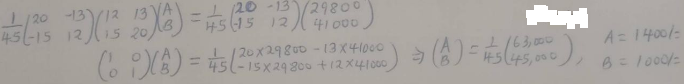 1/45 (20 -13 / -15 12) (12 13 / 15 20) (A / B) = 1/45 (20 -13 / -15 12) (29800 / 41000)
(1 0 / 0 1) (A / B) = 1/45 (20×29800 - 13×41000 / -15×29800 + 12×41000) ⇒ (A / B) = 1/45 (63,000 / 45,000), A = 1400/= B = 1000/=